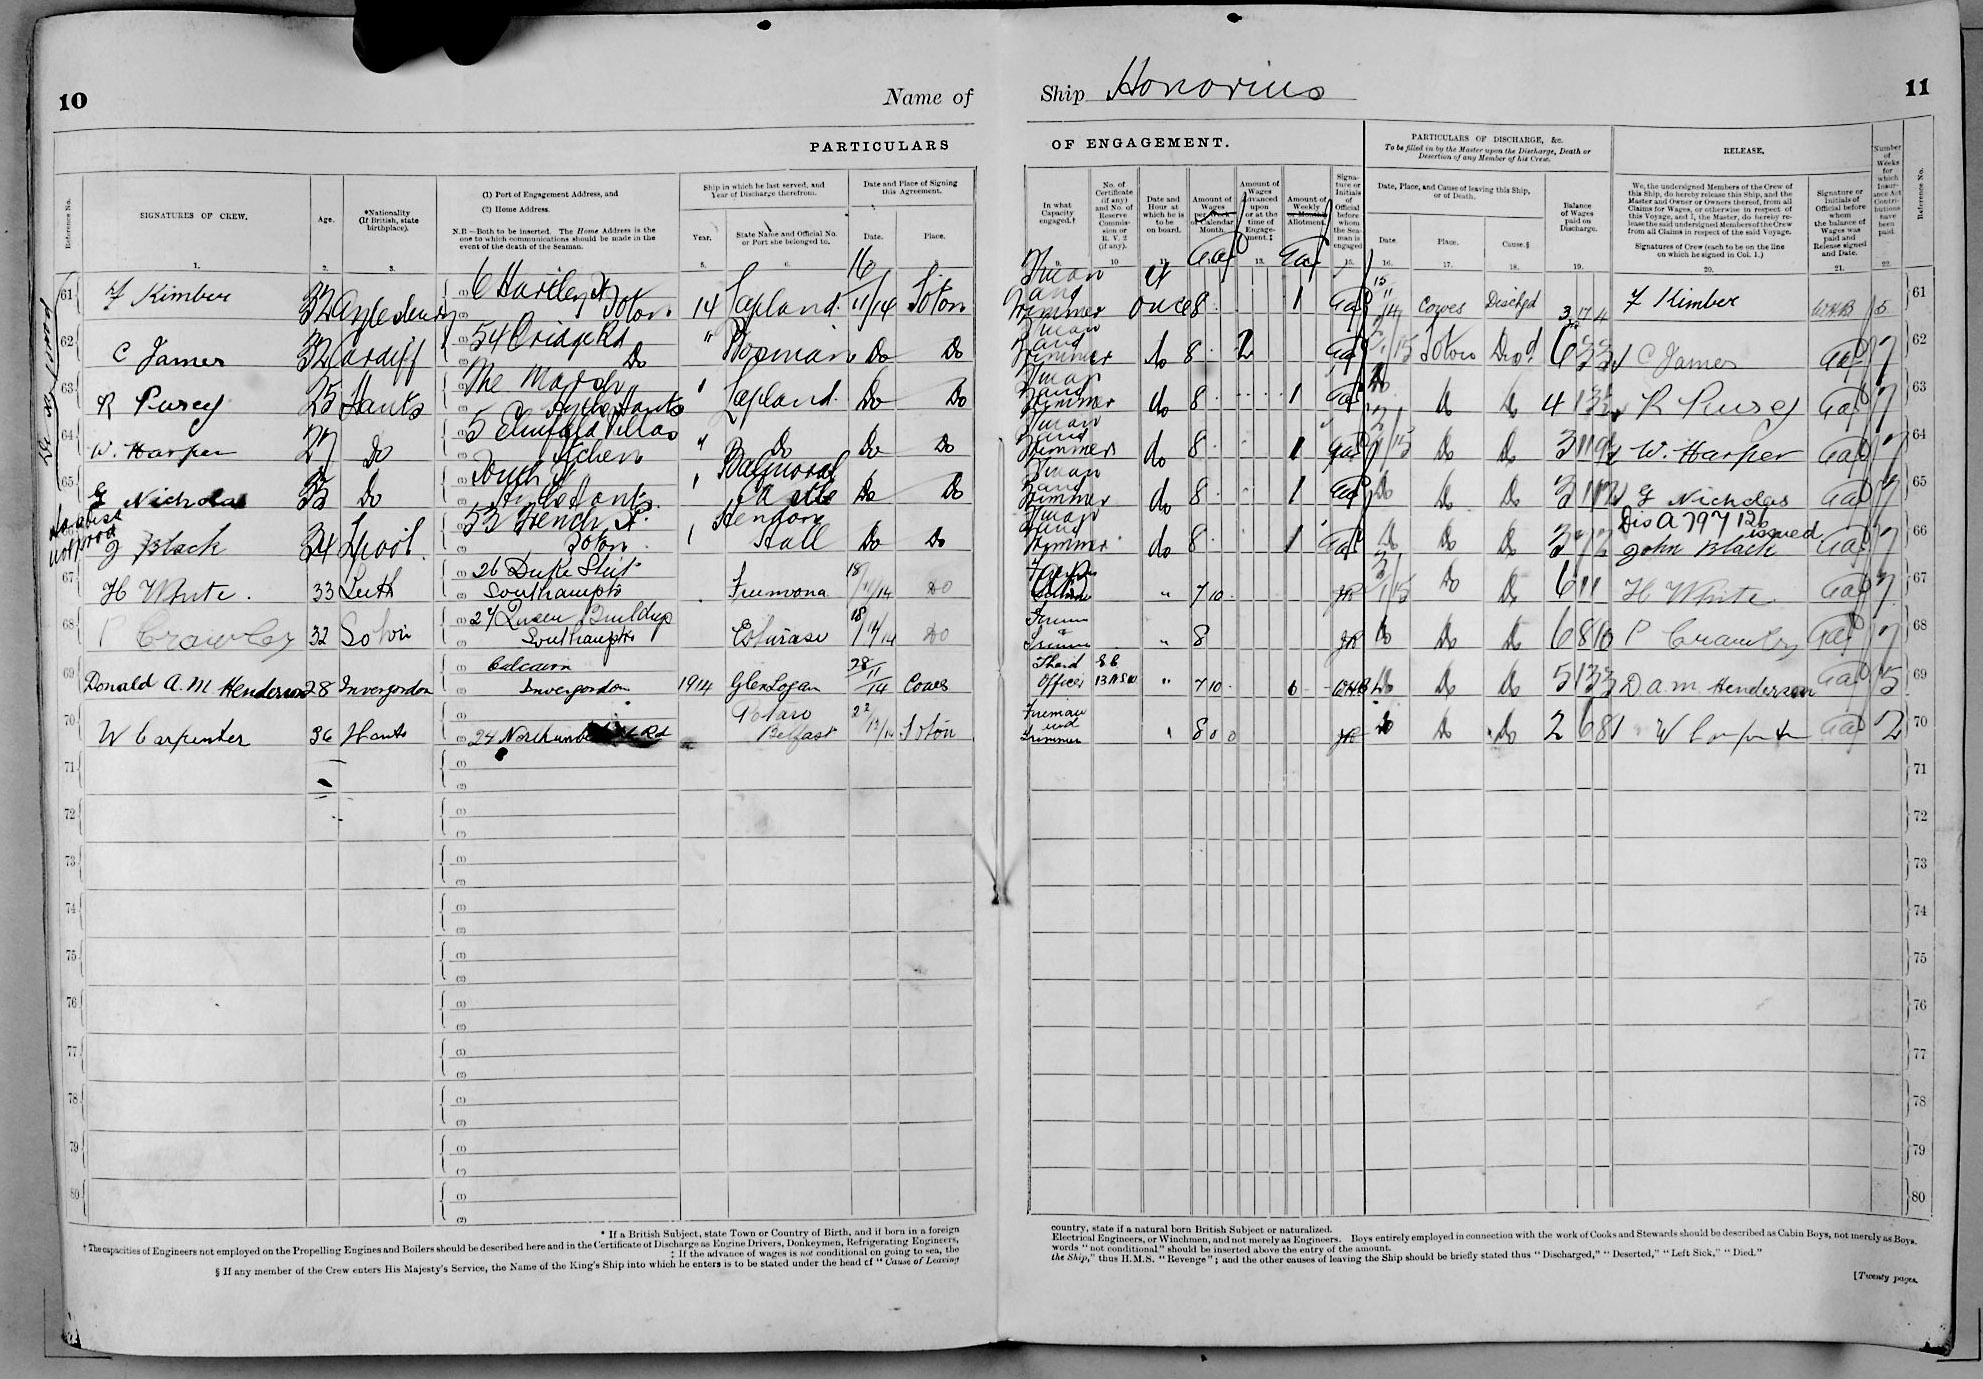 10
Name of
PARTICULARS
Reference No.
SIGNATURES OF CREW.
Age.
*Nationality
(If British, state
birthplace).
(1) Port of Engagement Address, and
(2) Home Address.
N.B.—Both to be inserted. The Home Address is the
one to which communications should be made in the
event of the death of the Seaman.
Ship in which he last served, and
Year of Discharge therefrom.
Year.
State Name and Official No.
or Port she belonged to.
Date and Place of Signing
this Agreement.
Date.
Place.
1. 2. 3. 5. 6.
61 F Kimber 32 6 Hartley St Soton 14 Lapland 16/11/14 Soton
62 C James 32 Cardiff 54 Bridge Rd Do " Do Do
63 R Pursey 25 Hants The Marsh Hythe Hants " Lapland Do Do
64 W. Harper 27 Do 5 Villas Itchen " Do Do Do
65 G Nicholas 35 Do South St Hythe Hants " Balmoral Castle Do Do
66 J Black 34 Lpool 53 French St. Soton " Hendon Hall Do Do
67 H White. 33 Leith 26 Duke Street Southampton 18/11/14 Do
68 P Crawley 32 Soton 27 Queen Buildings Southampton 18/11/14 Do
69 Donald A. M. Henderson 28 Invergordon Invergordon 1914 Glenlogan 28/11/14 Cowes
70 W Carpenter 36 Hants 24 Rd Potaro Belfast 22/12/14 Soton
71
72
73
74
75
76
77
78
79
80
* If a British Subject, state Town or Country of Birth, and if born in a foreign
† The capacities of Engineers not employed on the Propelling Engines and Boilers should be described here and in the Certificate of Discharge as Engine Drivers, Donkeymen, Refrigerating Engineers,
‡ If the advance of wages is not conditional on going to sea, the
§ If any member of the Crew enters His Majesty's Service, the Name of the King's Ship into which he enters is to be stated under the head of "Cause of Leaving
Ship Honorius
11
OF ENGAGEMENT.
PARTICULARS OF DISCHARGE, &c.
To be filled in by the Master upon the Discharge, Death or
Desertion of any Member of his Crew.
RELEASE.
In what
Capacity
engaged.†
No. of
Certificate
(if any)
and No. of
Reserve
Commis-
sion or
R. V. 2
(if any).
Date and
Hour at
which he is
to be
on board.
Amount of
Wages
per Week
Calendar
Month.
Amount of
Wages
Advanced
upon
or at the
time of
Engage-
ment.‡
Amount of
Weekly
or Monthly
Allotment.
Signa-
ture or
Initials
of
Official
before
whom
the Sea-
man is
engaged
Date, Place, and Cause of leaving this Ship,
or of Death.
Date.
Place.
Cause.§
Balance
of Wages
paid on
Discharge.
We, the undersigned Members of the Crew of
this Ship, do hereby release this Ship, and the
Master and Owner or Owners thereof, from all
Claims for Wages, or otherwise in respect of
this Voyage, and I, the Master, do hereby re-
lease the said undersigned Members of the Crew
from all Claims in respect of the said Voyage.
Signatures of Crew (each to be on the line
on which he signed in Col. 1.)
Signature or
Initials of
Official before
whom
the balance of
Wages was
paid and
Release signed
and Date.
Number
of
Weeks
for
which
Insur-
ance Act
Contri-
butions
have
been
paid.
Reference No.
9. 10 13. 15. 16. 17. 18. 19. 20. 21. 22.
Fman and Trimmer at once 8 1 15/11/14 Cowes Dischgd 3 17 4 F Kimber WHB 5 61
Fman and Trimmer do 8 2 Soton Disd 6 C James 7 62
Fman and Trimmer do 8 1 Do Do Do 4 R Pursey 7 63
Fman and Trimmer do 8 1 2/1/15 Do Do 3 W. Harper 7 64
Fman and Trimmer do 8 1 Do Do Do 3 G Nicholas 7 65
Dis A 797126 issued
Fman and Trimmer do 8 1 Do Do Do 3 John Black 7 66
" 7 10 JR 3/1/15 Do Do 6 11 H White 7 67
Fireman & Trimmer " 8 JR Do Do Do 6 8 10 P Crawley 7 68
Third Officer " 7 10 6 WHB Do Do Do 5 D A. M. Henderson 5 69
Fireman and Trimmer " 8 0 0 JR Do Do Do 2 6 8 W Carpenter 2 70
71
72
73
74
75
76
77
78
79
80
country, state if a natural born British Subject or naturalized.
Electrical Engineers, or Winchmen, and not merely as Engineers. Boys entirely employed in connection with the work of Cooks and Stewards should be described as Cabin Boys, not merely as Boys.
words "not conditional" should be inserted above the entry of the amount.
the Ship," thus H.M.S. "Revenge"; and the other causes of leaving the Ship should be briefly stated thus "Discharged," "Deserted," "Left Sick," "Died."
[Twenty pages.